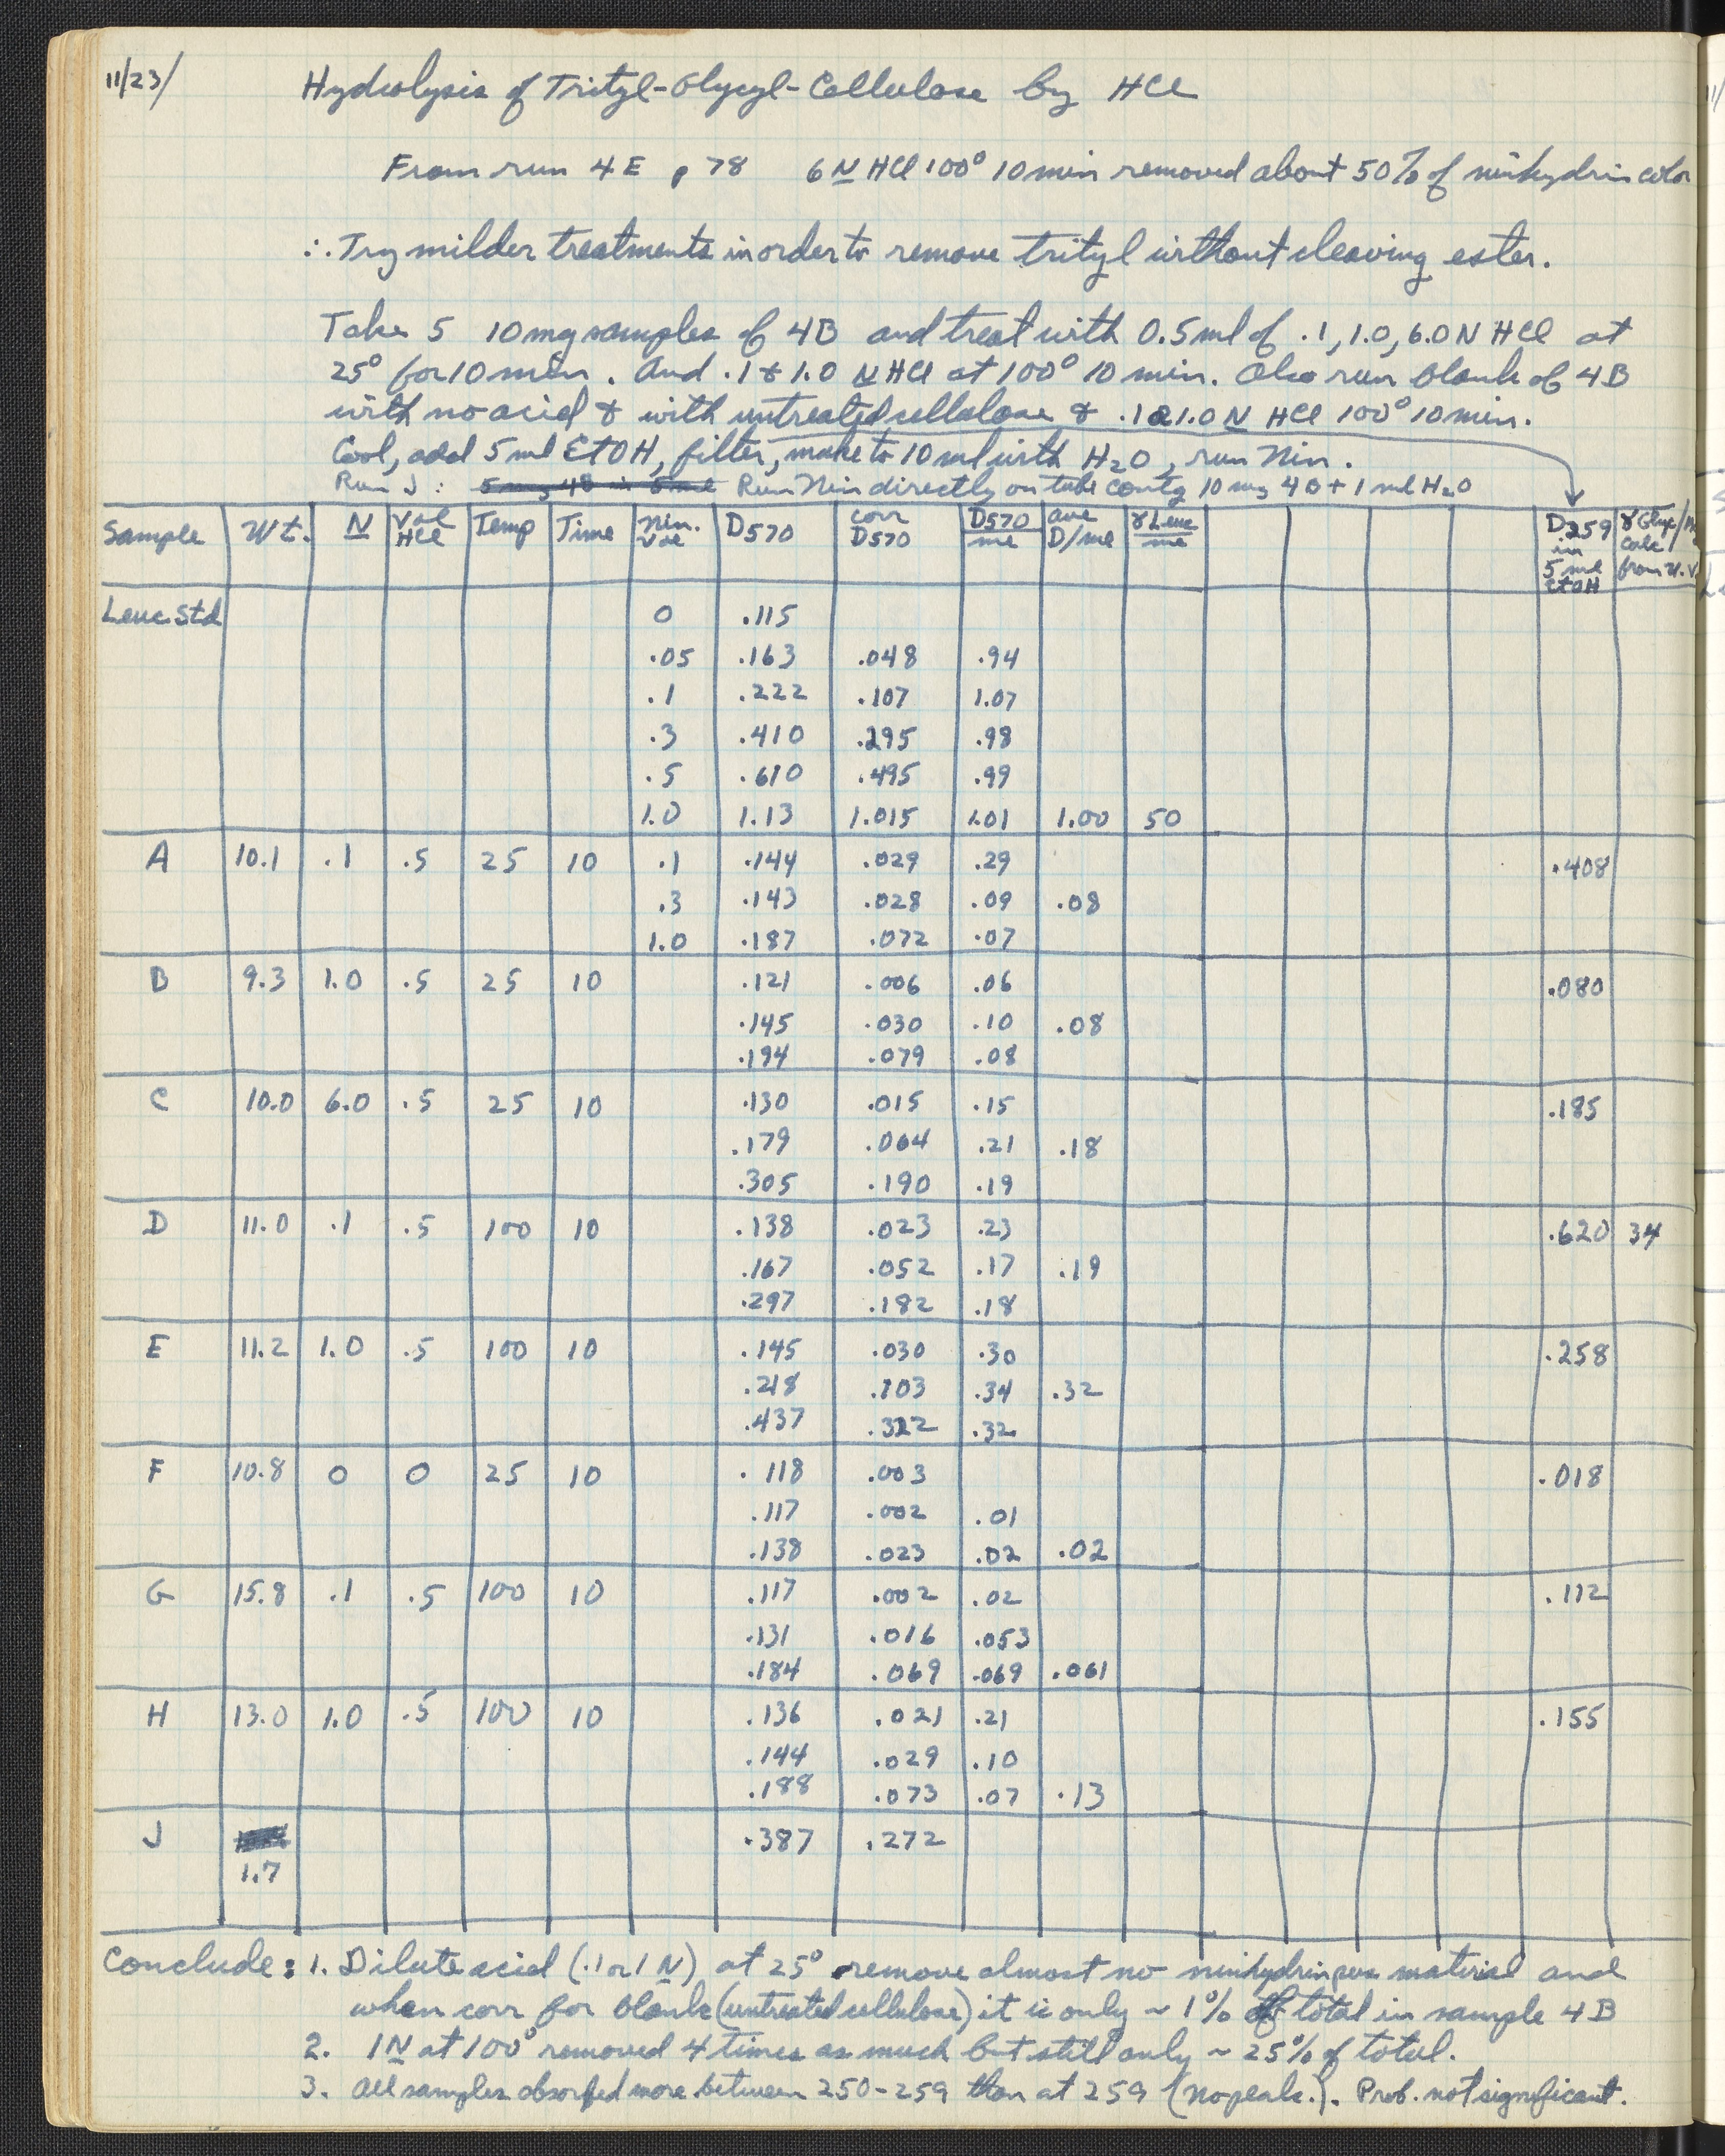 11/23/
Hydrolysis of Trityl-Glycyl-Cellulose by HCl
From run 4E p 78 6N HCl 100° 10 min removed about 50% of ninhydrin color
∴ Try milder treatments in order to remove trityl without cleaving ester.
Take 5 10 mg samples of 4B and treat with 0.5 ml of .1, 1.0, 6.0 N HCl at
25° for 10 min. And .1 & 1.0 N HCl at 100° 10 min. Also run blank of 4B
with no acid & with untreated cellulose & .1 & 1.0 N HCl 100° 10 min.
Cool, add 5 ml EtOH, filter, make to 10 ml with H2O, run Nin.
Run J: 5 mg 4B in 5 ml Run Nin directly on tube contg 10 mg 4B + 1 ml H2O
Sample Wt. N Vol HCl Temp Time Nin. Vol D570 corr D570 D570/ml ave D/ml γ Leuc/ml D259 in 5 ml EtOH γ Glyc/ calc from U.V.
Leuc. Std 0 .115
.05 .163 .048 .94
.1 .222 .107 1.07
.3 .410 .295 .98
.5 .610 .495 .99
1.0 1.13 1.015 1.01 1.00 50
A 10.1 .1 .5 25 10 .1 .144 .029 .29 .408
.3 .143 .028 .09 .08
1.0 .187 .072 .07
B 9.3 1.0 .5 25 10 .121 .006 .06 .080
.145 .030 .10 .08
.194 .079 .08
C 10.0 6.0 .5 25 10 .130 .015 .15 .185
.179 .064 .21 .18
.305 .190 .19
D 11.0 .1 .5 100 10 .138 .023 .23 .620 34
.167 .052 .17 .19
.297 .182 .18
E 11.2 1.0 .5 100 10 .145 .030 .30 .258
.218 .103 .34 .32
.437 .322 .32
F 10.8 0 0 25 10 .118 .003 .018
.117 .002 .01
.138 .023 .02 .02
G 15.8 .1 .5 100 10 .117 .002 .02 .112
.131 .016 .053
.184 .069 .069 .061
H 13.0 1.0 .5 100 10 .136 .021 .21 .155
.144 .029 .10
.188 .073 .07 .13
J .387 .272
1.7
Conclude: 1. Dilute acid (.1 or 1 N) at 25° remove almost no ninhydrin pos material and
when corr for blank (untreated cellulose) it is only ~ 1% of total in sample 4B
2. 1N at 100° removed 4 times as much but still only ~ 25% of total.
3. All samples absorbed more between 250-259 than at 259 (No peak.). Prob. not significant.